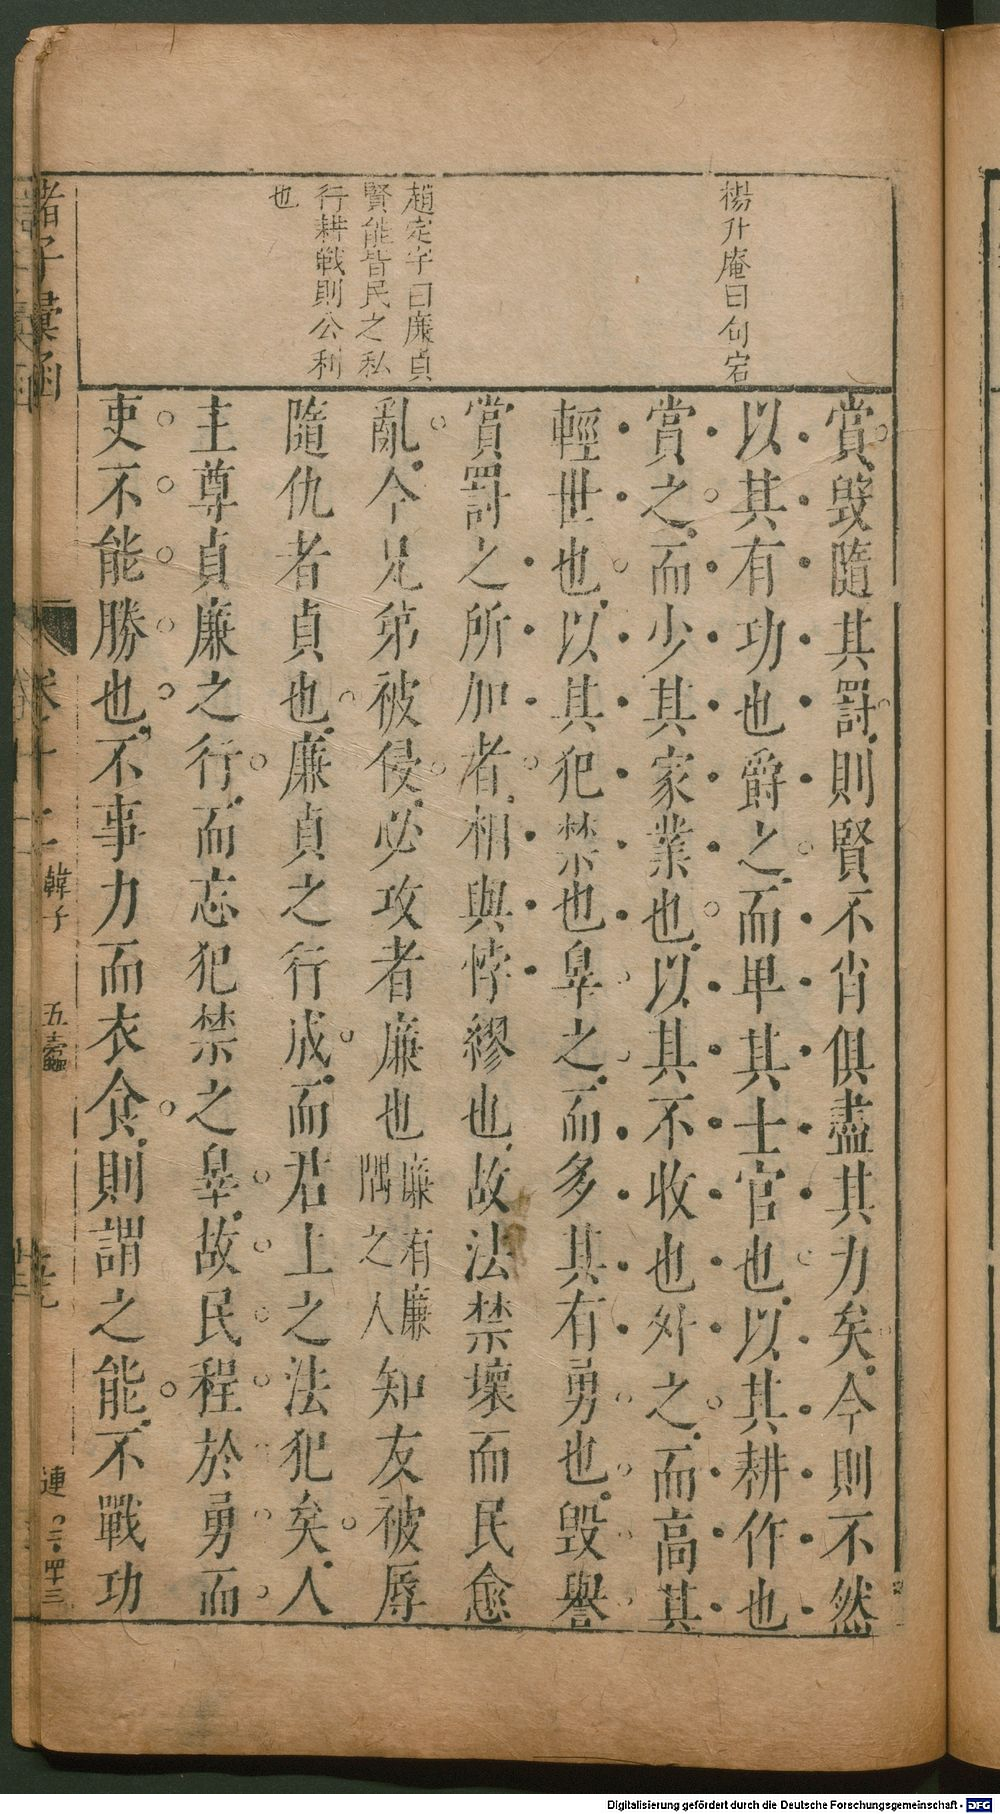 楊升庵曰句宕
趙定宇曰廉貞
賢能皆民之私
行耕戰則公利
也
賞毀隨其罰則賢不肖俱盡其力矣今則不然
以其有功也爵之而卑其士官也以其耕作也
賞之而少其家業也以其不收也外之而高其
輕世也以其犯禁也辠之而多其有勇也毀譽
賞罰之所加者相與悖繆也故法禁壞而民愈
亂今兄弟被侵必攻者廉也廉有廉隅之人知友被辱
隨仇者貞也廉貞之行成而君上之法犯矣人
主尊貞廉之行而忘犯禁之辠故民程於勇而
吏不能勝也不事力而衣食則謂之能不戰功
諸子彙函
韓子
五蠹
連
Digitalisierung gefördert durch die Deutsche Forschungsgemeinschaft - DFG